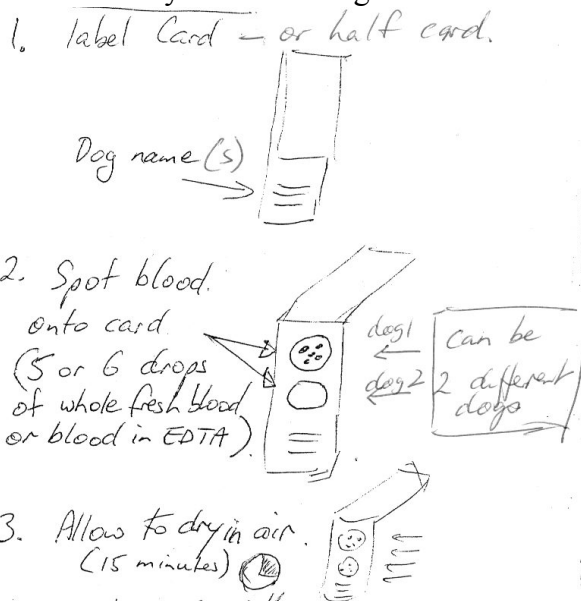 1. label Card – or half card.
Dog name(s)
2. Spot blood.
onto card
(5 or 6 drops
of whole fresh blood
or blood in EDTA)
dog1
dog2
can be
2 different
dogs
3. Allow to dry in air.
(15 minutes)